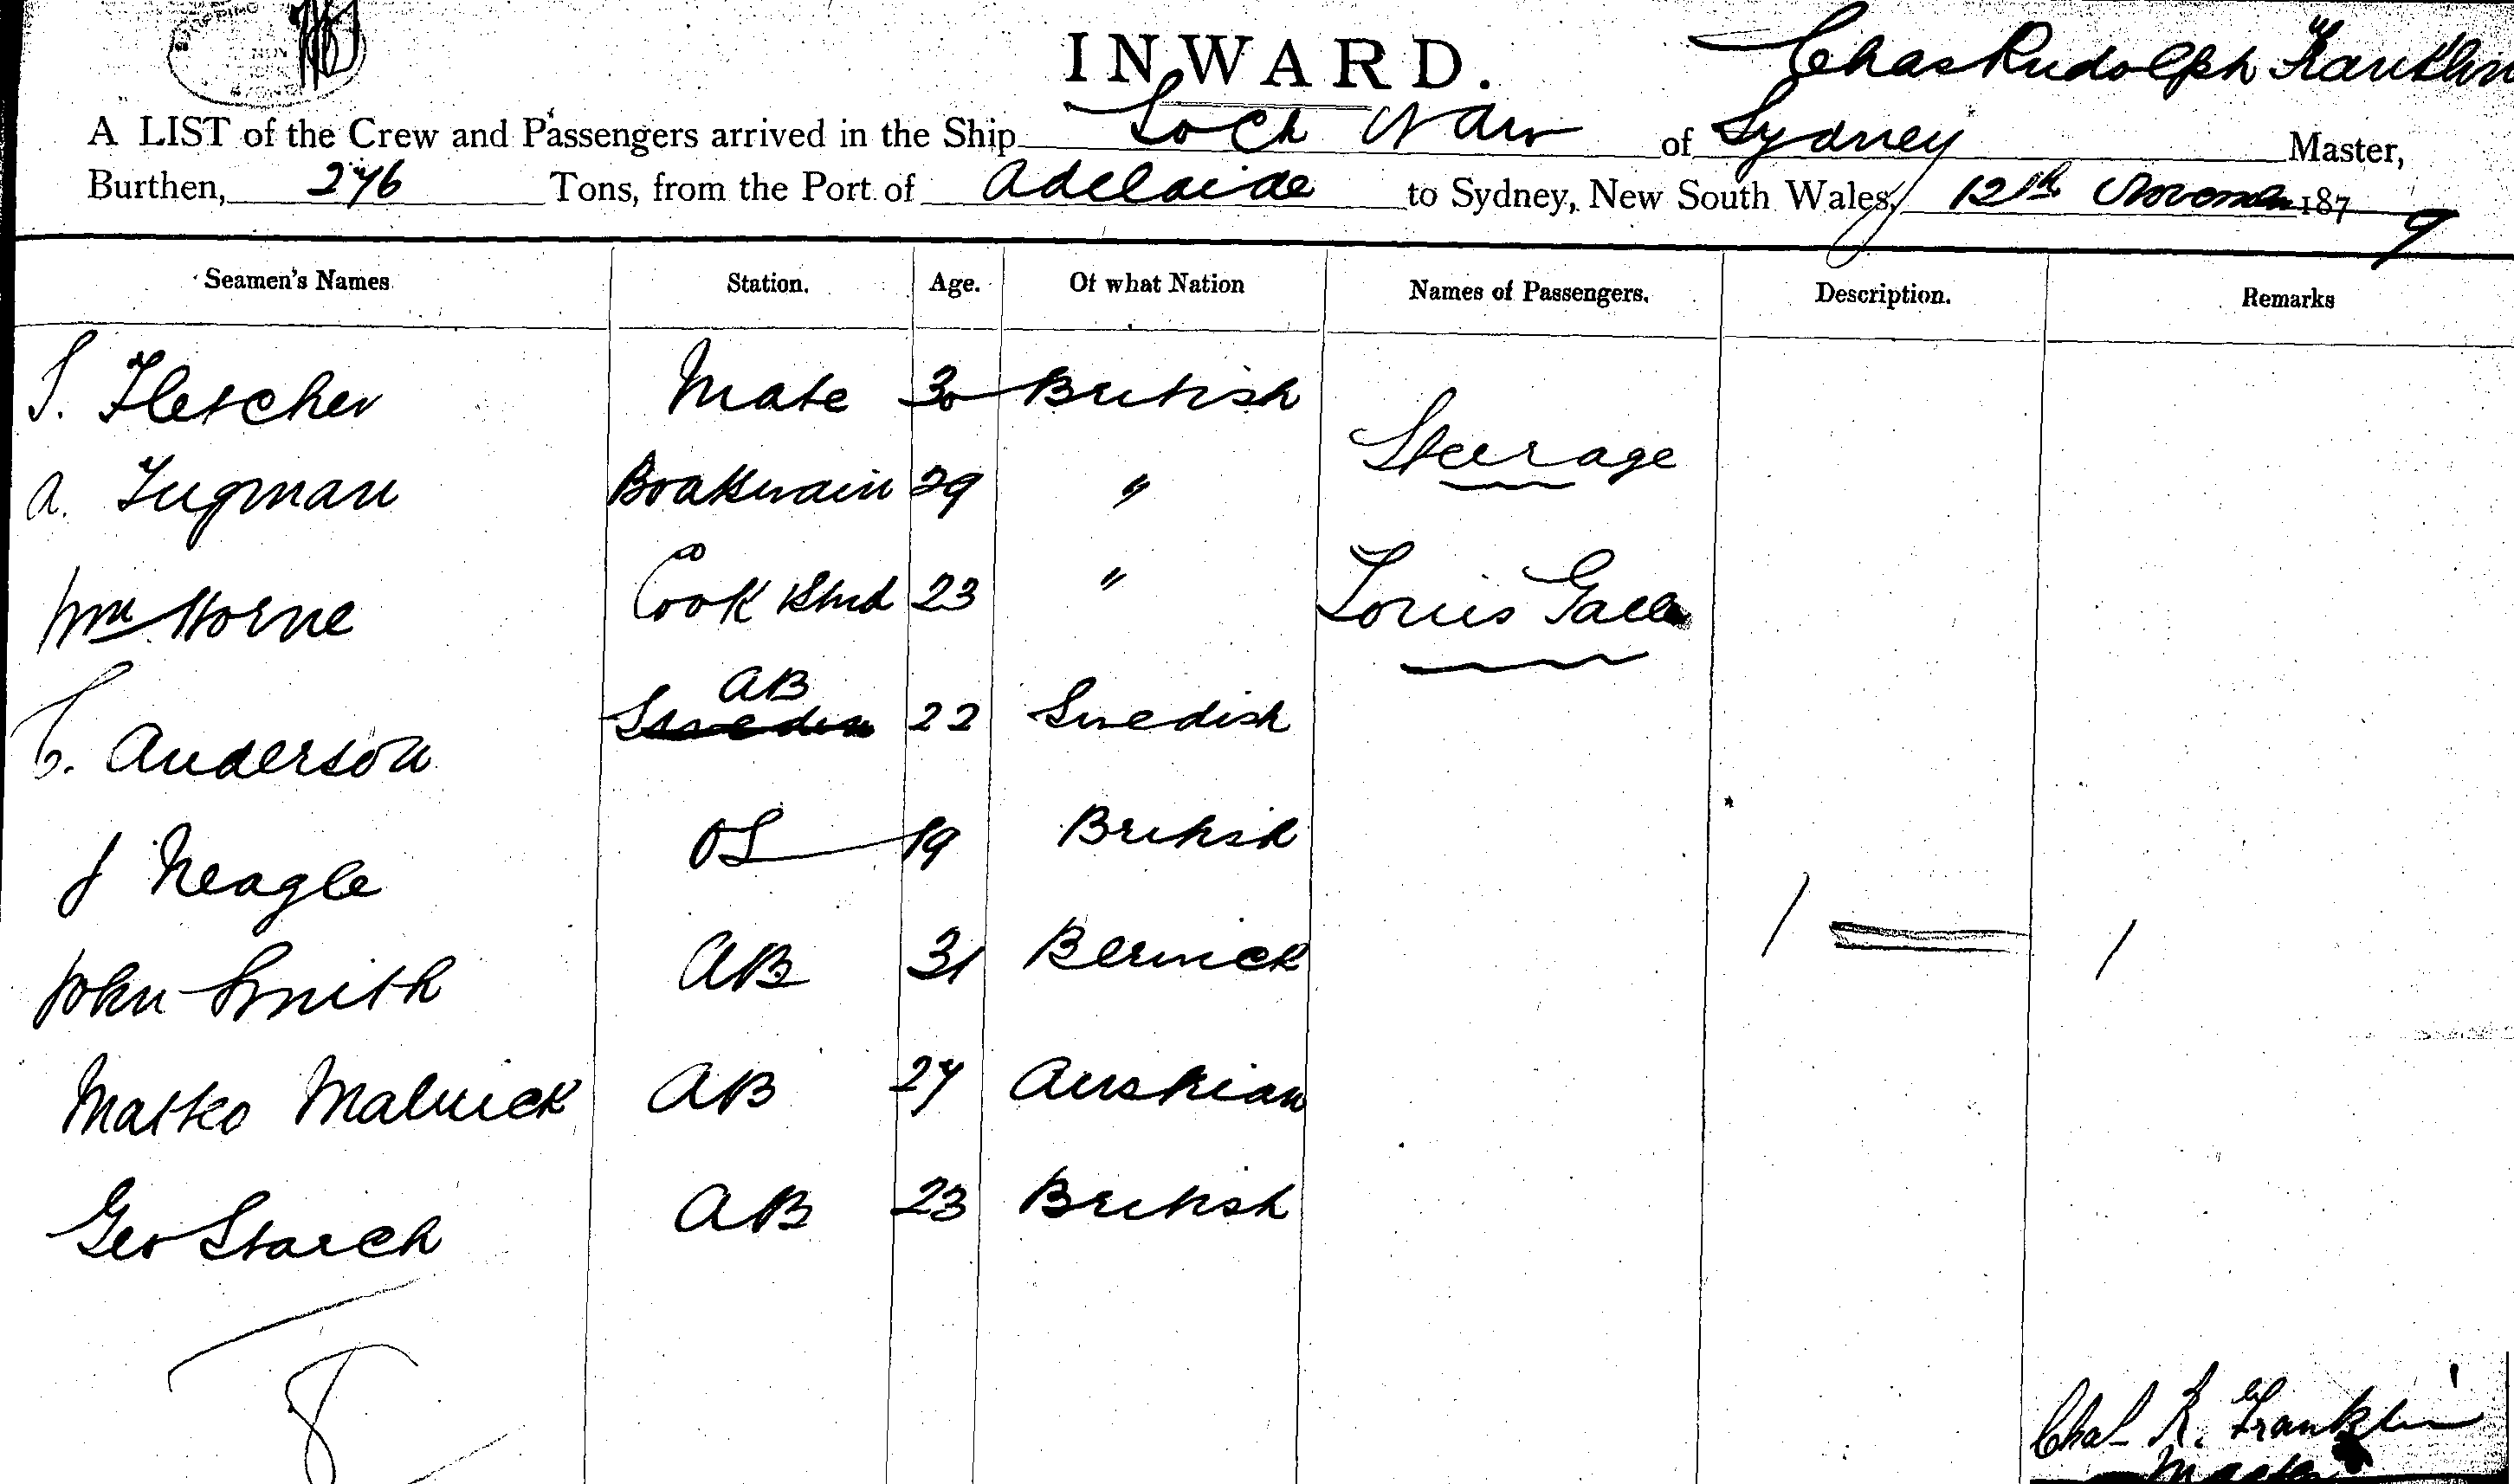 INWARD.
Chas Rudolph Franklin
A LIST of the Crew and Passengers arrived in the Ship Loch of Sydney Master,
Burthen, 276 Tons, from the Port of Adelaide to Sydney, New South Wales, 12th November 1879
Seamen's Names Station. Age. Of what Nation Names of Passengers. Description. Remarks
S. Fletcher Mate 30 British
Steerage
A. Tugman Boatswain 29 "
Wm Horne Cook Stwd 23 " Louis
C. Anderson AB Sweden 22 Swedish
J Neagle OS 19 British
John Smith AB 31 Berwick
Matteo AB 27 Austrian
Geo Starch AB 23 British
8
Chas R. Franklin